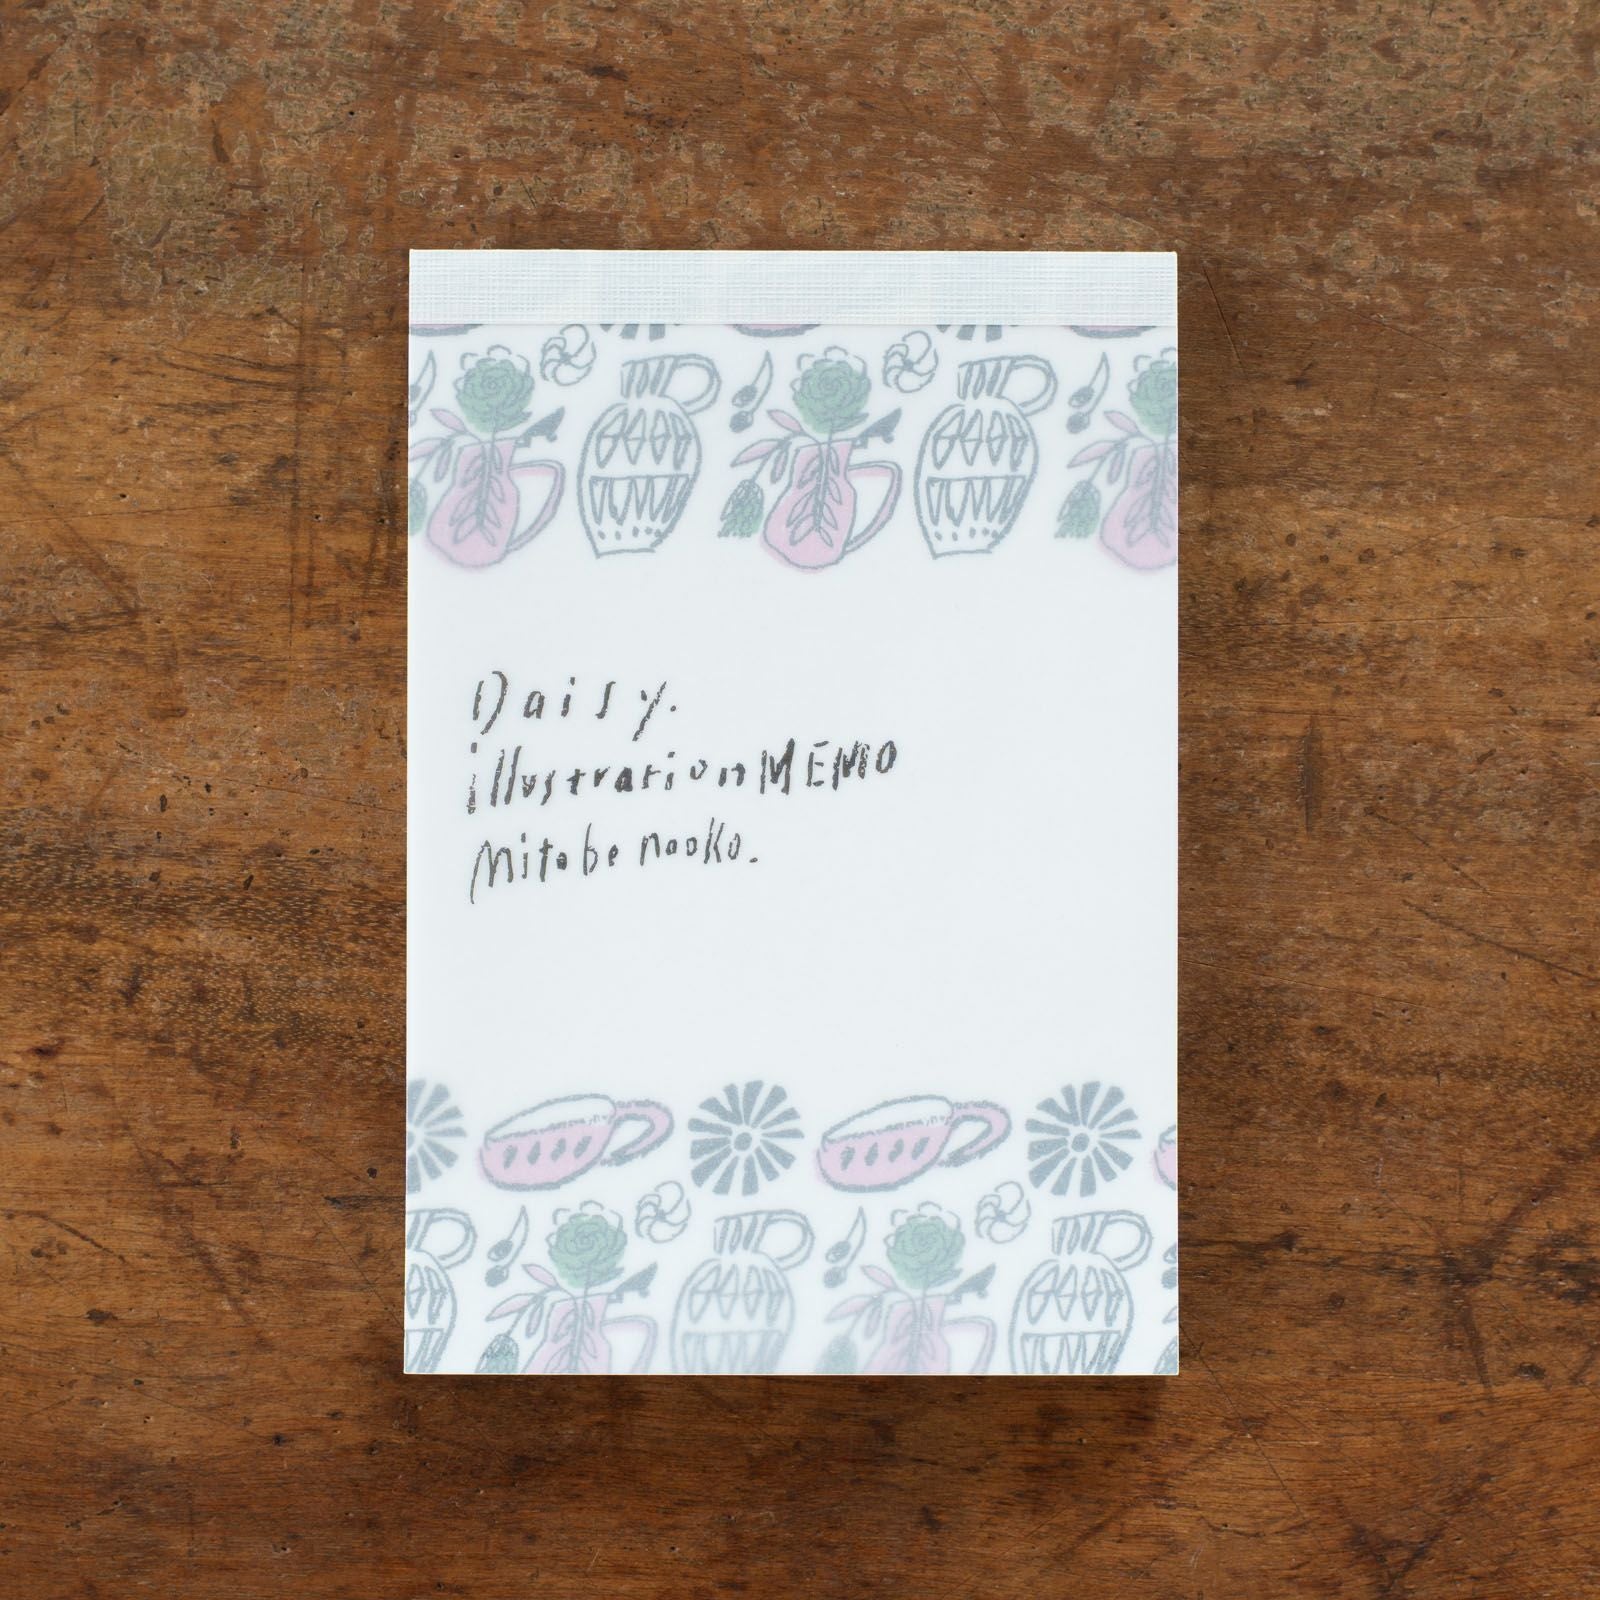 Daisy.
illustration MEMO
Mitobe naoko.